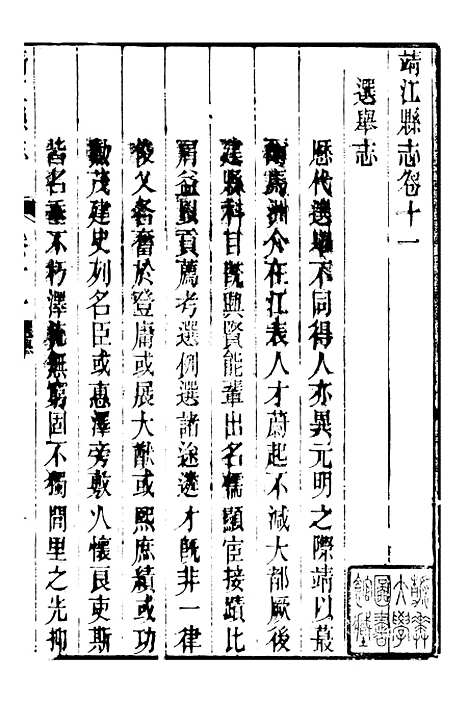 靖江縣志卷十一
選舉志
歷代選舉不同得人亦異元明之際靖以蕞
爾馬洲介在江表人才蔚起不減大都厥後
建縣科目既興賢能輩出名儒顯宦接蹟比
肩益以貢薦考選例選諸途遴才既非一律
俊乂各奮於登庸或展大猷或熙庶績或功
勳茂建史列名臣或惠澤旁敷人懷良吏斯
皆名垂不朽澤流無窮固不獨閭里之光抑
燕京大學圖書館